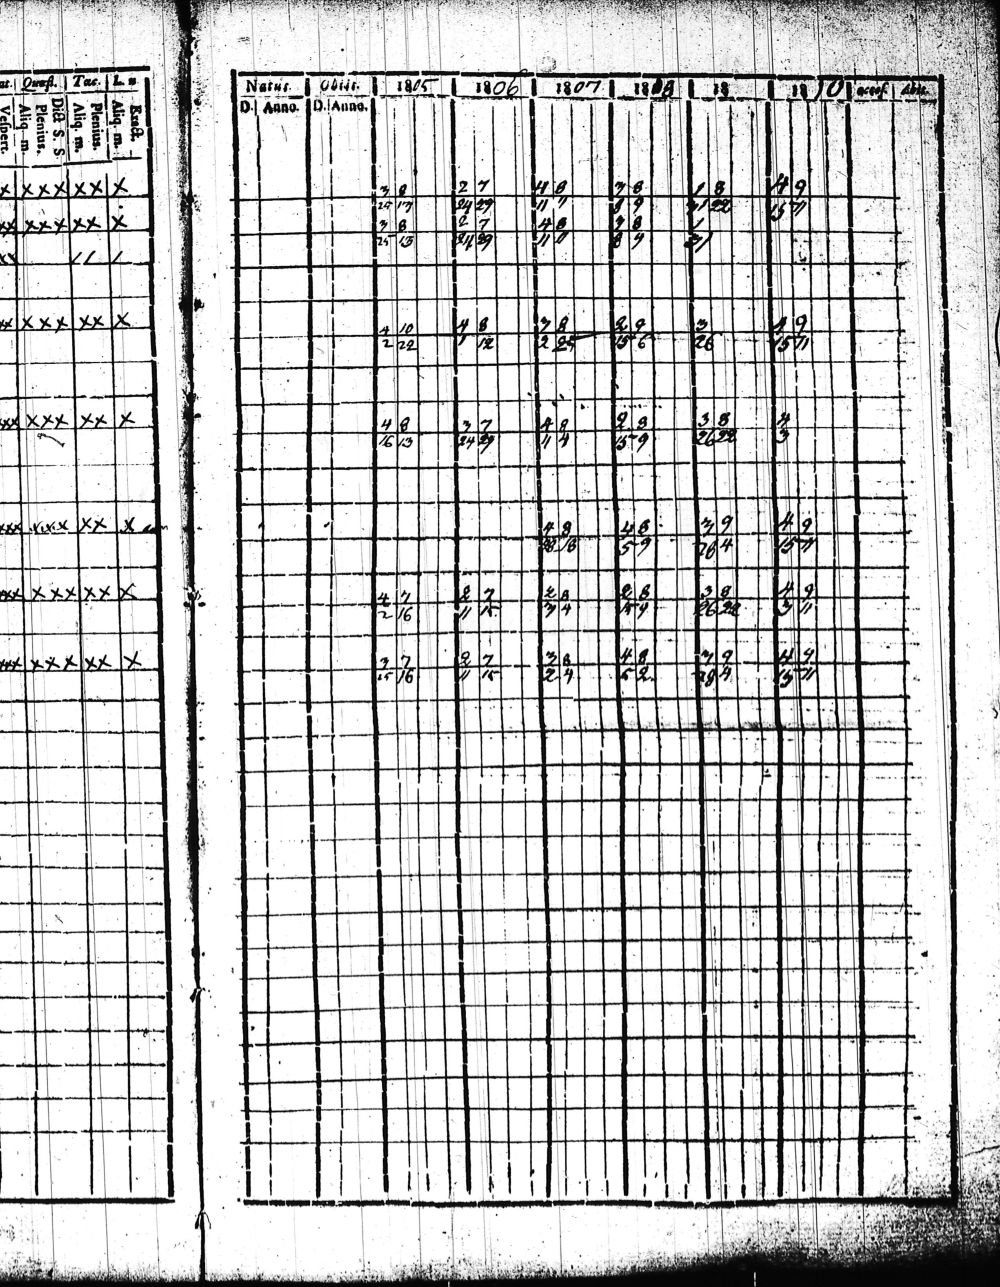 Quæst. Tac. L. n
Vespert.
Aliq. m.
Plenius.
Dict S. S
Aliq. m.
Plenius.
Aliq. m.
Exact.
Natus. Obiit. 1805 1806 1807 1808 18 1810 access. Abit.
D. Anno. D. Anno.
x x x x x x x
3 8 2 7 4 8 3 8 1 8 4 9
25 17 24 29 11 8 9 31 22 15 11
xx x x x x x x
3 8 2 7 4 8 3 8 1
25 13 24 29 11 8 9 31
xx x x x x x x
4 10 4 8 3 8 2 9 3 4 9
2 22 1 12 2 25 15 6 26 15 11
xxx x x x x x x
4 8 3 7 4 8 2 8 3 8 4
16 13 24 29 11 4 15 9 26 22 3
xxx x x x x x x
4 8 4 8 3 9 4 9
28 16 5 9 4 15 11
xxx x x x x x x
4 7 2 7 2 8 2 8 3 8 4 9
2 16 11 15 4 15 9 26 22 3 11
xxx x x x x x x
3 7 2 7 3 8 4 8 3 9 4 9
25 16 11 15 2 4 5 2 4 15 11